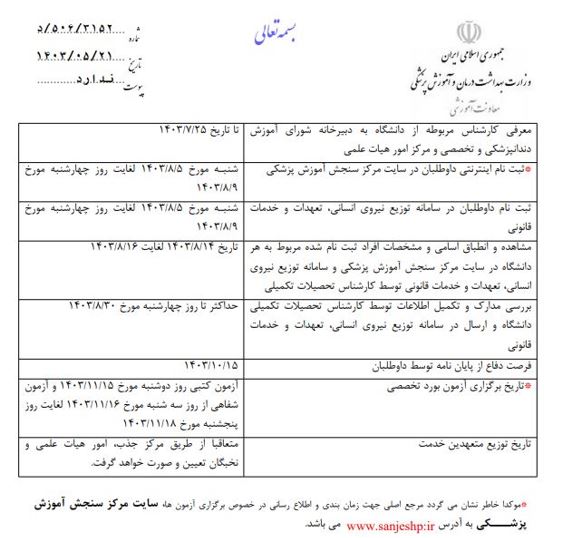 بسمه تعالی
جمهوری اسلامی ایران
وزارت بهداشت درمان و آموزش پزشکی
معاونت آموزشی
شماره ۵/۵۰۶/۳۱۵۲
تاریخ ۱۴۰۳/۰۵/۲۱
پیوست ندارد
معرفی کارشناس مربوطه از دانشگاه به دبیرخانه شورای آموزش
دندانپزشکی و تخصصی و مرکز امور هیات علمی
تا تاریخ ۱۴۰۳/۷/۲۵
*ثبت نام اینترنتی داوطلبان در سایت مرکز سنجش آموزش پزشکی
شنبه مورخ ۱۴۰۳/۸/۵ لغایت روز چهارشنبه مورخ
۱۴۰۳/۸/۹
ثبت نام داوطلبان در سامانه توزیع نیروی انسانی، تعهدات و خدمات
قانونی
شنبه مورخ ۱۴۰۳/۸/۵ لغایت روز چهارشنبه مورخ
۱۴۰۳/۸/۹
مشاهده و انطباق اسامی و مشخصات افراد ثبت نام شده مربوط به هر
دانشگاه در سایت مرکز سنجش آموزش پزشکی و سامانه توزیع نیروی
انسانی، تعهدات و خدمات قانونی توسط کارشناس تحصیلات تکمیلی
تاریخ ۱۴۰۳/۸/۱۴ لغایت ۱۴۰۳/۸/۱۶
بررسی مدارک و تکمیل اطلاعات توسط کارشناس تحصیلات تکمیلی
دانشگاه و ارسال در سامانه توزیع نیروی انسانی، تعهدات و خدمات
قانونی
حداکثر تا روز چهارشنبه مورخ ۱۴۰۳/۸/۳۰
فرصت دفاع از پایان نامه توسط داوطلبان
۱۴۰۳/۱۰/۱۵
*تاریخ برگزاری آزمون بورد تخصصی
آزمون کتبی روز دوشنبه مورخ ۱۴۰۳/۱۱/۱۵ و آزمون
شفاهی از روز سه شنبه مورخ ۱۴۰۳/۱۱/۱۶ لغایت روز
پنجشنبه مورخ ۱۴۰۳/۱۱/۱۸
تاریخ توزیع متعهدین خدمت
متعاقبا از طریق مرکز جذب، امور هیات علمی و
نخبگان تعیین و صورت خواهد گرفت.
*موکدا خاطر نشان می گردد مرجع اصلی جهت زمان بندی و اطلاع رسانی در خصوص برگزاری آزمون ها، سایت مرکز سنجش آموزش
پزشکی به آدرس www.sanjeshp.ir می باشد.